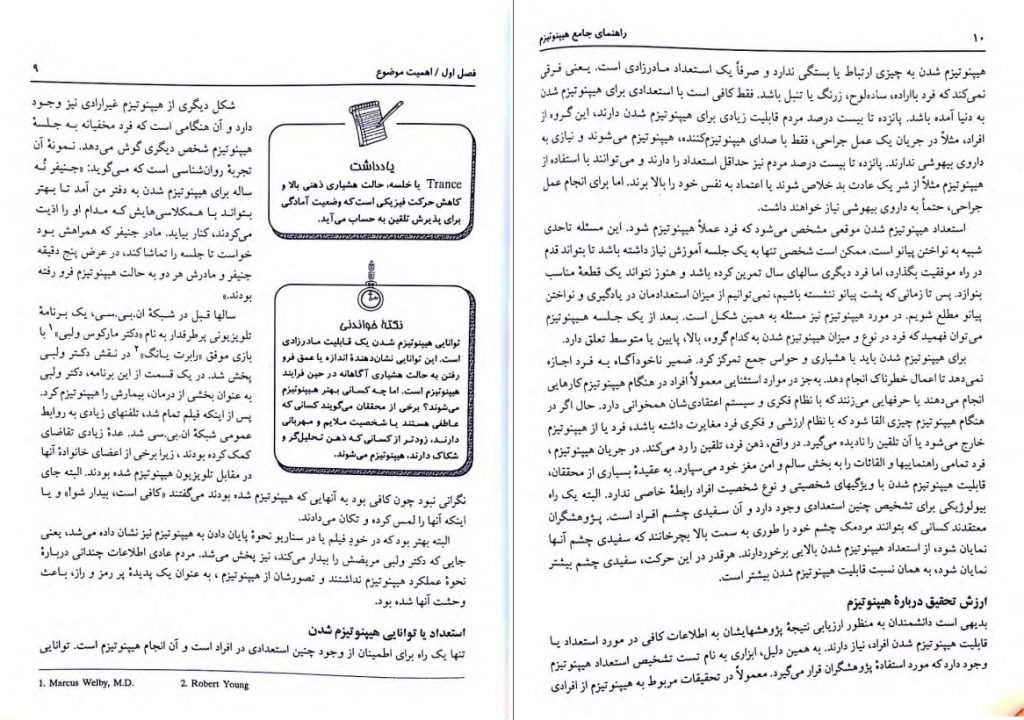 فصل اول / اهمیت موضوع
۹
شکل دیگری از هیپنوتیزم غیرارادی نیز وجود
دارد و آن هنگامی است که فرد مخفیانه به جلسهٔ
هیپنوتیزم شخص دیگری گوش می‌دهد. نمونهٔ آن
تجربهٔ روان‌شناسی است که می‌گوید: «جنیفر نُه
ساله برای هیپنوتیزم شدن به دفتر من آمد تا بهتر
بتواند با همکلاسی‌هایش که مدام او را اذیت
می‌کردند، کنار بیاید. مادر جنیفر که همراهش بود
خواست تا جلسه را تماشا کند، در عرض پنج دقیقه
جنیفر و مادرش هر دو به حالت هیپنوتیزم فرو رفته
بودند.»
یادداشت
Trance یا خلسه، حالت هشیاری ذهنی بالا و
کاهش حرکت فیزیکی است که وضعیت آمادگی
برای پذیرش تلقین به حساب می‌آید.
سالها قبل در شبکهٔ ان.بی.سی، یک برنامهٔ
تلویزیونی پرطرفدار به نام «دکتر مارکوس ولبی»۱ با
بازی موفق «رابرت یانگ»۲ در نقش دکتر ولبی
پخش شد. در یک قسمت از این برنامه، دکتر ولبی
به عنوان بخشی از درمان، بیمارش را هیپنوتیزم کرد.
پس از اینکه فیلم تمام شد، تلفنهای زیادی به روابط
عمومی شبکهٔ ان.بی.سی شد. عدهٔ زیادی تقاضای
کمک کرده بودند، زیرا برخی از اعضای خانوادهٔ آنها
در مقابل تلویزیون هیپنوتیزم شده بودند. البته جای
نکتهٔ خواندنی
توانایی هیپنوتیزم شدن یک قابلیت مادرزادی
است. این توانایی نشان‌دهندهٔ اندازه یا عمق فرو
رفتن به حالت هشیاری آگاهانه در حین فرایند
هیپنوتیزم است. اما چه کسانی بهتر هیپنوتیزم
می‌شوند؟ برخی از محققان می‌گویند کسانی که
عاطفی هستند یا شخصیت ملایم و مهربانی
دارند، زودتر از کسانی که ذهن تحلیل‌گر و
شکاک دارند، هیپنوتیزم می‌شوند.
نگرانی نبود چون کافی بود به آنهایی که هیپنوتیزم شده بودند می‌گفتند «کافی است، بیدار شو!» و یا
اینکه آنها را لمس کرده و تکان می‌دادند.
البته بهتر بود که در خودِ فیلم یا در سناریو نحوهٔ پایان دادن به هیپنوتیزم نیز نشان داده می‌شد، یعنی
جایی که دکتر ولبی مریضش را بیدار می‌کند، نیز پخش می‌شد. مردم عادی اطلاعات چندانی دربارهٔ
نحوهٔ عملکرد هیپنوتیزم نداشتند و تصورشان از هیپنوتیزم، به عنوان یک پدیدهٔ پر رمز و راز، باعث
وحشت آنها شده بود.
استعداد یا توانایی هیپنوتیزم شدن
تنها یک راه برای اطمینان از وجود چنین استعدادی در افراد است و آن انجام هیپنوتیزم است. توانایی
1. Marcus Welby, M.D. 2. Robert Young
۱۰
راهنمای جامع هیپنوتیزم
هیپنوتیزم شدن به چیزی ارتباط یا بستگی ندارد و صرفاً یک استعداد مادرزادی است. یعنی فرقی
نمی‌کند که فرد بااراده، ساده‌لوح، زرنگ یا تنبل باشد. فقط کافی است با استعدادی برای هیپنوتیزم شدن
به دنیا آمده باشد. پانزده تا بیست درصد مردم قابلیت زیادی برای هیپنوتیزم شدن دارند، این گروه از
افراد، مثلاً در جریان یک عمل جراحی، فقط با صدای هیپنوتیزم‌کننده، هیپنوتیزم می‌شوند و نیازی به
داروی بیهوشی ندارند. پانزده تا بیست درصد مردم نیز حداقل استعداد را دارند و می‌توانند با استفاده از
هیپنوتیزم مثلاً از شر یک عادت بد خلاص شوند یا اعتماد به نفس خود را بالا برند. اما برای انجام عمل
جراحی، حتماً به داروی بیهوشی نیاز خواهند داشت.
استعداد هیپنوتیزم شدن موقعی مشخص می‌شود که فرد عملاً هیپنوتیزم شود. این مسئله تاحدی
شبیه به نواختن پیانو است. ممکن است شخصی تنها به یک جلسه آموزش نیاز داشته باشد تا بتواند قدم
در راه موفقیت بگذارد، اما فرد دیگری سالهای سال تمرین کرده باشد و هنوز نتواند یک قطعهٔ مناسب
بنوازد. پس تا زمانی که پشت پیانو ننشسته باشیم، نمی‌توانیم از میزان استعدادمان در یادگیری و نواختن
پیانو مطلع شویم. در مورد هیپنوتیزم نیز مسئله به همین شکل است. بعد از یک جلسه هیپنوتیزم
می‌توان فهمید که فرد در نوع و میزان هیپنوتیزم شدن به کدام گروه، بالا، پایین یا متوسط تعلق دارد.
برای هیپنوتیزم شدن باید با هشیاری و حواس جمع تمرکز کرد. ضمیر ناخودآگاه به فرد اجازه
نمی‌دهد تا اعمال خطرناک انجام دهد. به‌جز در موارد استثنایی معمولاً افراد در هنگام هیپنوتیزم کارهایی
انجام می‌دهند یا حرفهایی می‌زنند که با نظام فکری و سیستم اعتقادی‌شان همخوانی دارد. حال اگر در
هنگام هیپنوتیزم چیزی القا شود که با نظام ارزشی و فکری فرد مغایرت داشته باشد، فرد یا از هیپنوتیزم
خارج می‌شود یا آن تلقین را نادیده می‌گیرد. در واقع، ذهن فرد، تلقین را رد می‌کند. در جریان هیپنوتیزم،
فرد تمامی راهنماییها و القائات را به بخش سالم و امن مغز خود می‌سپارد. به عقیدهٔ بسیاری از محققان،
قابلیت هیپنوتیزم شدن با ویژگیهای شخصیتی و نوع شخصیت افراد رابطهٔ خاصی ندارد. البته یک راه
بیولوژیکی برای تشخیص چنین استعدادی وجود دارد و آن سفیدی چشم افراد است. پژوهشگران
معتقدند کسانی که بتوانند مردمک چشم خود را طوری به سمت بالا بچرخانند که سفیدی چشم آنها
نمایان شود، از استعداد هیپنوتیزم شدن بالایی برخوردارند. هرقدر در این حرکت، سفیدی چشم بیشتر
نمایان شود، به همان نسبت قابلیت هیپنوتیزم شدن بیشتر است.
ارزش تحقیق دربارهٔ هیپنوتیزم
بدیهی است دانشمندان به منظور ارزیابی نتیجهٔ پژوهشهایشان به اطلاعات کافی در مورد استعداد یا
قابلیت هیپنوتیزم شدن افراد، نیاز دارند. به همین دلیل، ابزاری به نام تست تشخیص استعداد هیپنوتیزم
وجود دارد که مورد استفادهٔ پژوهشگران قرار می‌گیرد. معمولاً در تحقیقات مربوط به هیپنوتیزم از افرادی